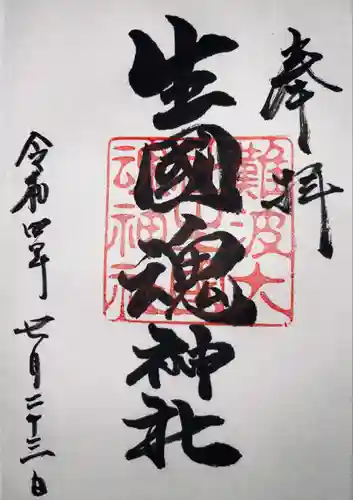 奉拝
生國魂神社
難波大
魂神社
令和四年
七月二十三日